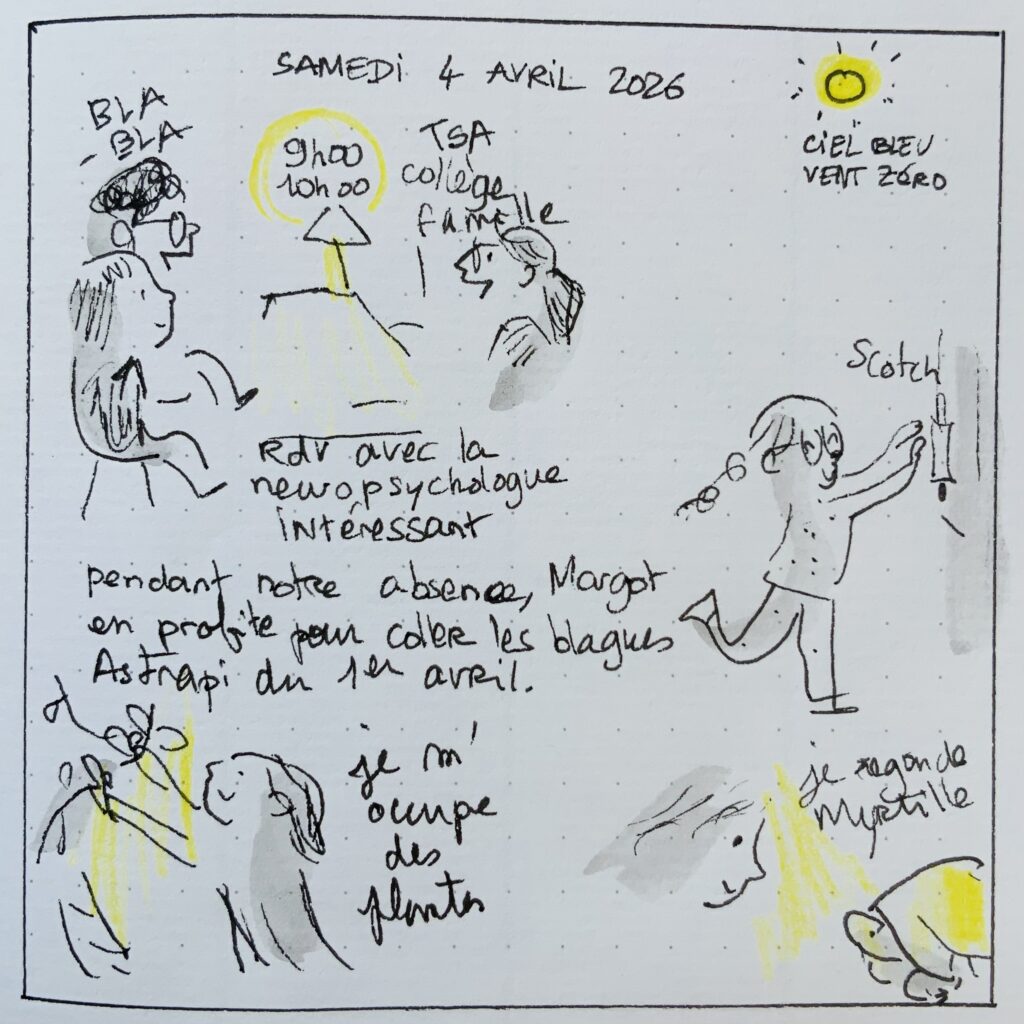 SAMEDI 4 AVRIL 2026
CIEL BLEU
VENT ZÉRO
BLA
BLA
9h00
10h00
TSA
collège
famille
Scotch
RdV avec la
neuropsychologue
intéressant
pendant notre absence, Margot
en profite pour coller les blagues
Astrapi du 1er avril.
je m'
occupe
des
plantes
je regarde
Myrtille